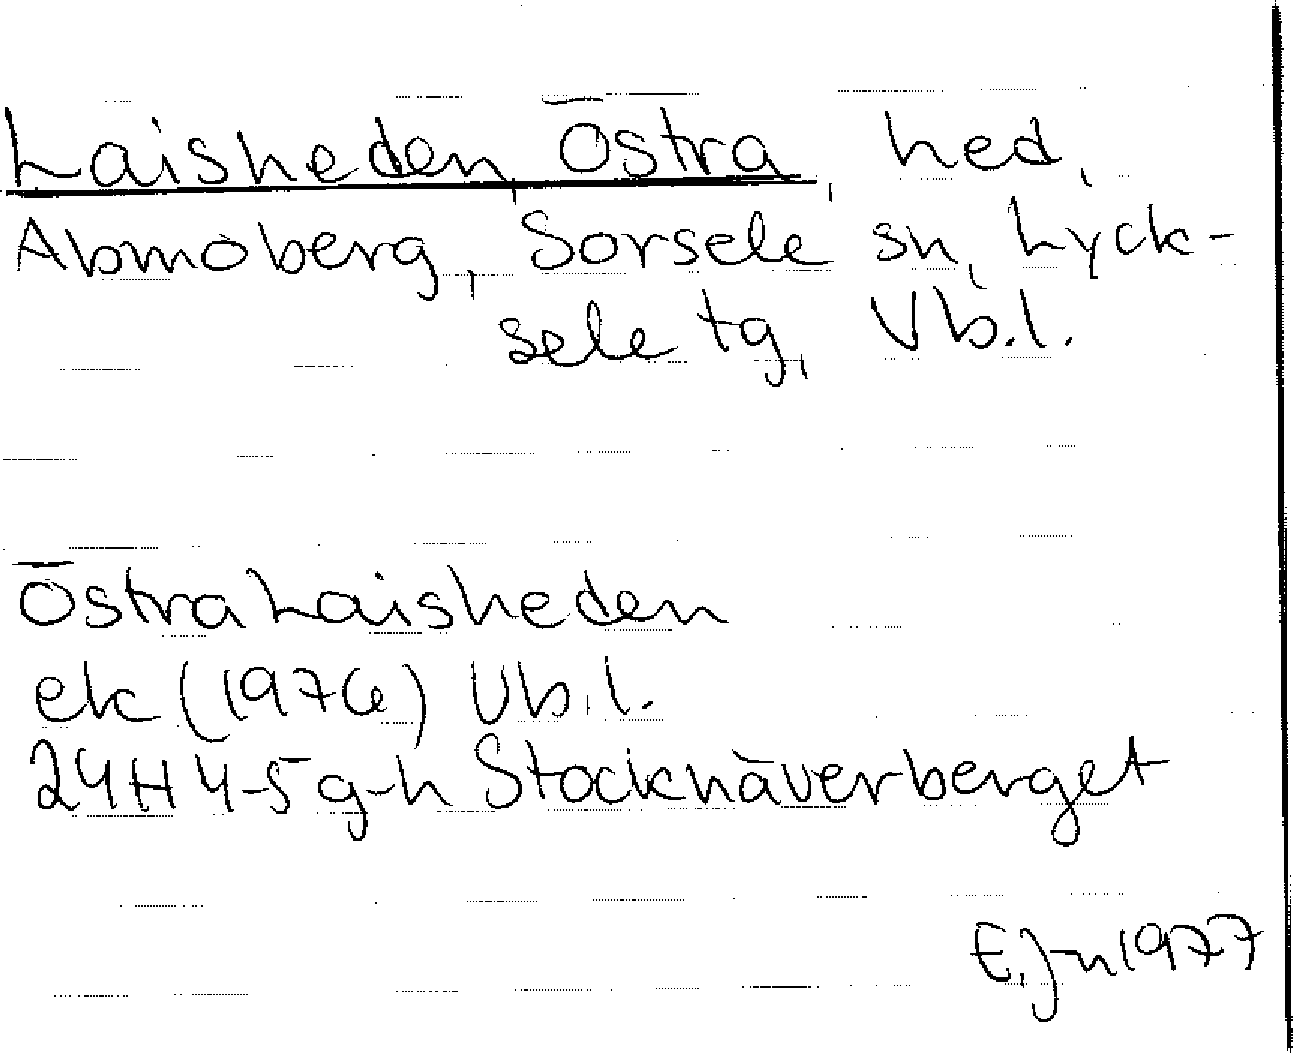 Laisheden, Östra, hed,
Abmoberg, Sorsele sn, Lyck-
sele tg, Vb.l.
Östra Laisheden
ek (1976) Vb.l.
24H 4-5 g-h Stocknäverberget
E.J-n 1977